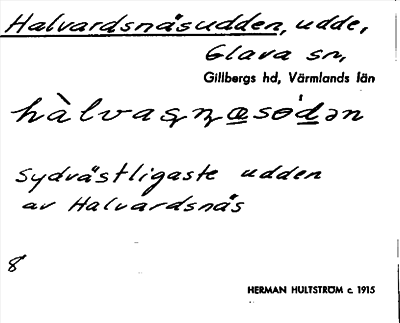 Halvardsnäsudden, udde,
Glava sn,
Gillbergs hd, Värmlands län
Sydvästligaste udden
av Halvardsnäs
8
HERMAN HULTSTRÖM c. 1915